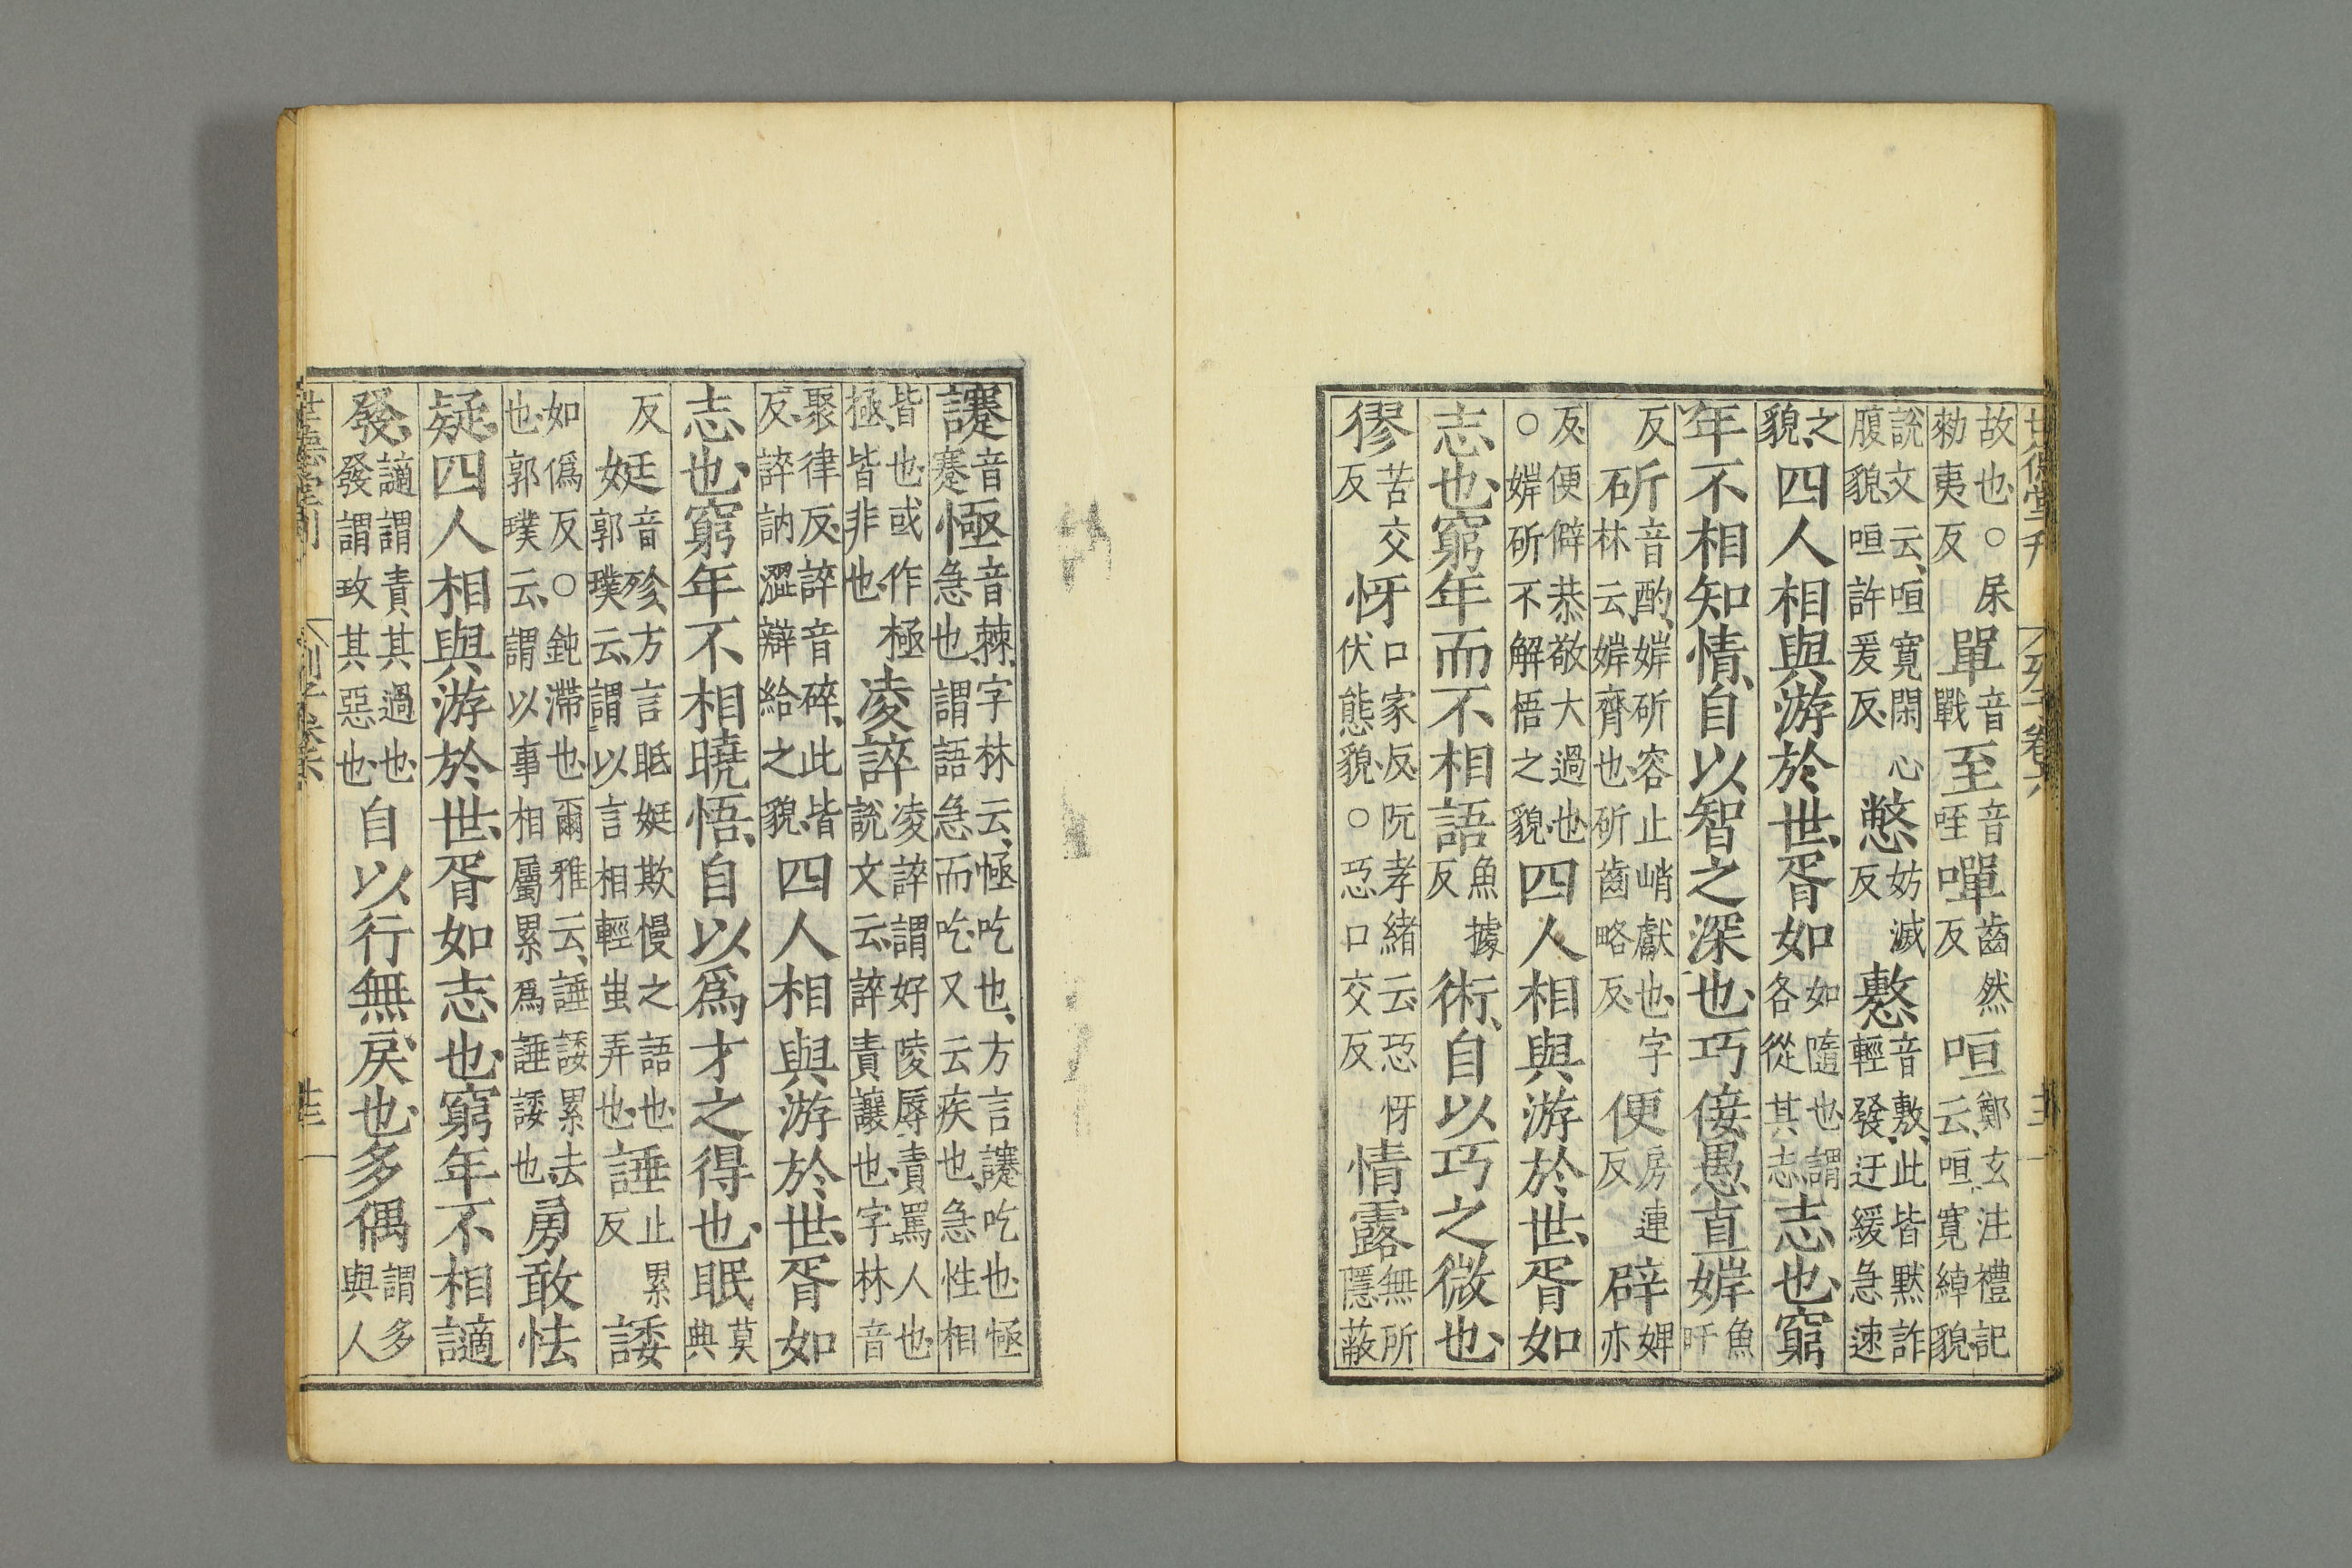 故也○㞋勑夷反單音戰至音咥嘽齒然反咺鄭玄注禮記云咺寛綽貌
說文云咺寛閑心腹貌咺許爰反憋妨滅反憨音敷此皆默詐輕發迂緩急速
之貌四人相與游於世胥如如隨也謂各從其志志也窮
年不相知情自以智之深也巧佞愚直婩魚旰
反斫音酌婩斫容止峭巘也字林云婩齊也斫齒略反便房連反辟婢亦
反便僻恭敬大過也○婩斫不解悟之貌四人相與游於世胥如
志也窮年而不相語魚據反術自以巧之微也
㺒苦交反㤉口家反阮孝緒云㤉㤉伏態貌○㤉口交反情露無所隱蔽
讓音蹇㥛音棘字林云㥛吃也方言讓吃也㥛急也謂語急而吃又云疾也急性相
皆也或作極極皆非也凌誶凌誶謂好陵辱責罵人也說文云誶責讓也字林音
聚律反誶音碎此皆反誶訥澀辯給之貌四人相與游於世胥如
志也窮年不相曉悟自以爲才之得也眠莫典
反娗音殄方言眠娗欺慢之語也郭璞云謂以言相輕蚩弄也諈止累反諉
如僞反○鈍滯也爾雅云諈諉累去也郭璞云謂以事相屬累爲諈諉也勇敢怯
疑四人相與游於世胥如志也窮年不相讁
發讁謂責其過也發謂攻其惡也自以行無戾也多偶謂多與人